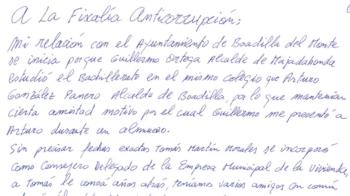 A La Fixalía Anticorrupción;
Mi relación con el Ayuntamiento de Boadilla del Monte
se inicia porque Guillermo Ortega Alcalde de Majadahonda
estudió el Bachillerato en el mismo colegio que Arturo
González Panero Alcalde de Boadilla, por lo que mantenían
cierta amistad motivo por el cual Guillermo me presentó a
Arturo durante un almuerzo.
Sin precisar fechas exactas Tomás Martín Morales se incorporó
como Consejero Delegado de la Empresa Municipal de la Vivienda,
a Tomás le conocí años atrás, teníamos varios amigos en común